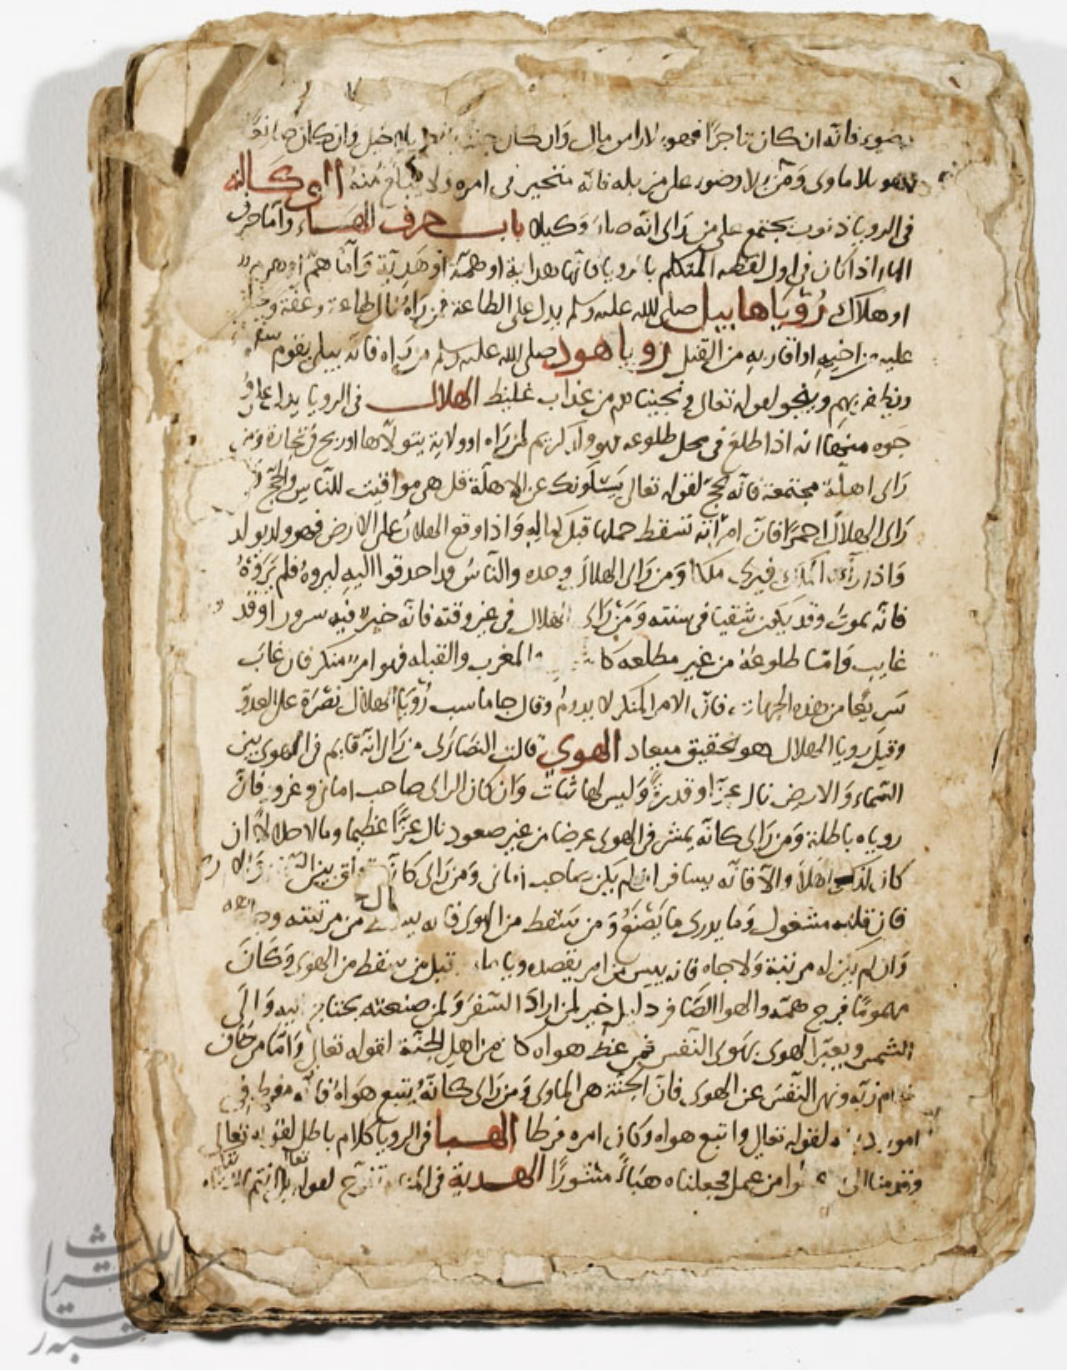 بضوء فانه ان كان تاجرًا فهو بلا راس مال وان كان
فهو بلا ماوى ومن بلا وضوء على مزبله فانه متحير في امره ولا يبلغ منه الوكاله
في الرويا ذنوب يجتمع على من راى انه صار وكيلا باب حرف الهاء واما حرف
الهاء اذا كان في اول لفظه المتكلم بالرويا فانها هداية او همّة او هدية واما همّ او هرم
او هلاك رؤيا هابيل صلى الله عليه وسلم يدل على الطاعة فمن راه نال طاعة وعفة
عليه من اخيه او اقاربه من القتل رويا هود صلى الله عليه وسلم من راه فانه يبلى بقوم
ويظفر بهم وينجو لقوله تعالى ونجيناهم من عذاب غليظ الهلال في الرويا يدل على
وجوه منها انه اذا طلع في محل طلوعه فهو ولد كريم لمن راه او ولاية يتولاها او ربح في تجارة ومن
راى اهلة مجتمعة فانه يحج لقوله تعالى يسئلونك عن الاهلة قل هي مواقيت للناس والحج
راى الهلال احمرًا فان امرأته تسقط حملها قبل كماله واذا وقع الهلال على الارض فهو ولد يولد
ومن راى الهلال وحده والناس قد احدقوا اليه ليروه فلم يروه
فانه يموت وقد يكون شقيا في سنته ومن راى الهلال في غير وقته فانه خير فيه سرور او قد
غايب واما طلوعه من غير مطلعه المغرب والقبله فهو امر منكر فان غاب
سريعًا من هذه الجهات فان الامر المنكر لا يدوم وقال جاماسب رؤيا الهلال نصرة على العدو
وقيل رويا الهلال هو تحقيق ميعاد الهوى قالت النصارى من راى انه قايم في الهوى بين
السماء والارض نال عزّا وقدرةً وليس لها ثبات وان كان الراى صاحب امانى وغرور فان
روياه باطلة ومن راى كانه يمشى في الهوى عرضا من غير صعود نال عزًّا عظيما ومالا حلالا ان
كان لذلك اهلا والا فانه يسافر ان لم يكن صاحب امانى ومن راى كانه
فان قلبه مشغول وما يدرى ما يصنع ومن سقط من الهوى فانه من مرتبته
وان لم يكن له مرتبة ولا جاه فانه ييس من امر يقصده قيل من سقط من الهوى وكان
مهمومًا فرج همه والهوا الصافى دليل خير لمن اراد السفر ولمن صنعته والى
الشمس ويعبر الهوى بهوى النفس فمن هواه كان من اهل الجنة لقوله تعالى واما من خاف
مقام ربه ونهى النفس عن الهوى فان الجنة هي الماوى ومن راى كانه يتبع هواه فانه مفرط في
امور لقوله تعالى واتبع هواه وكان امره فرطا الهبا في الرويا كلام باطل لقوله تعالى
وقدمنا الى عملوا من عمل فجعلناه هباءً منثورًا الهدية في المنام تفرح لقوله تعالى بل انتم